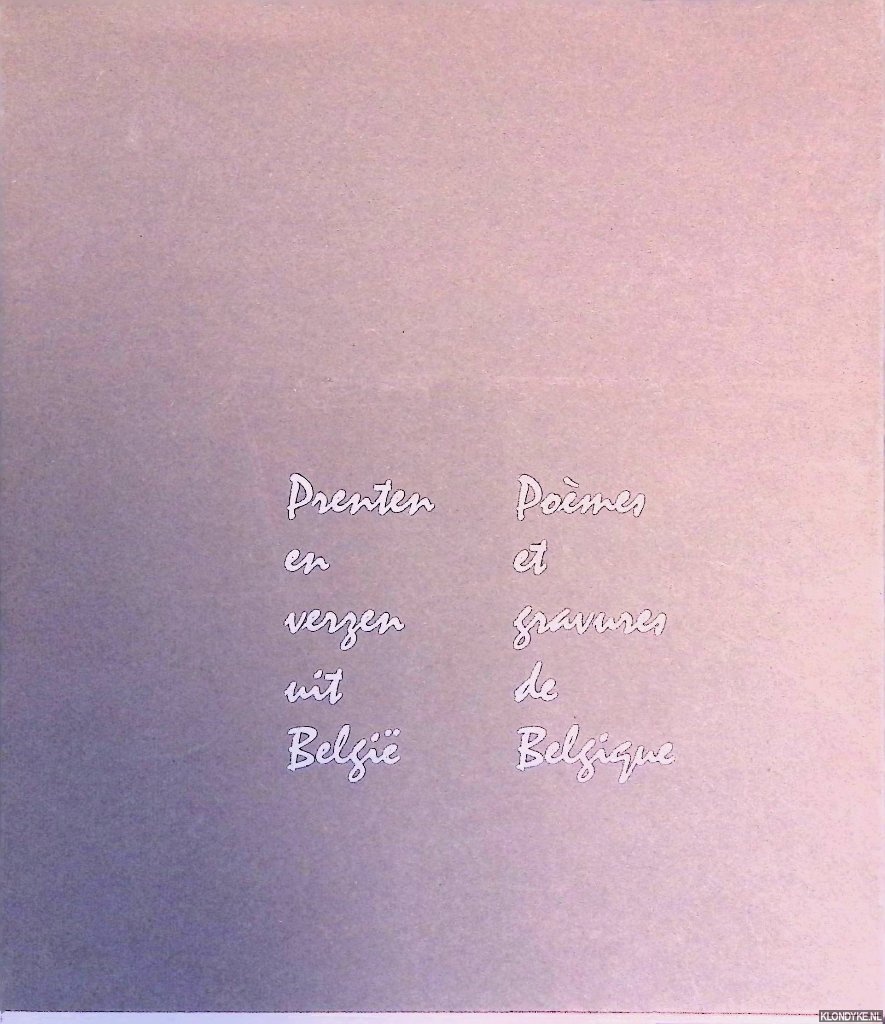 Prenten
en
verzen
uit
België
Poèmes
et
gravures
de
Belgique
KLONDYKE.NL